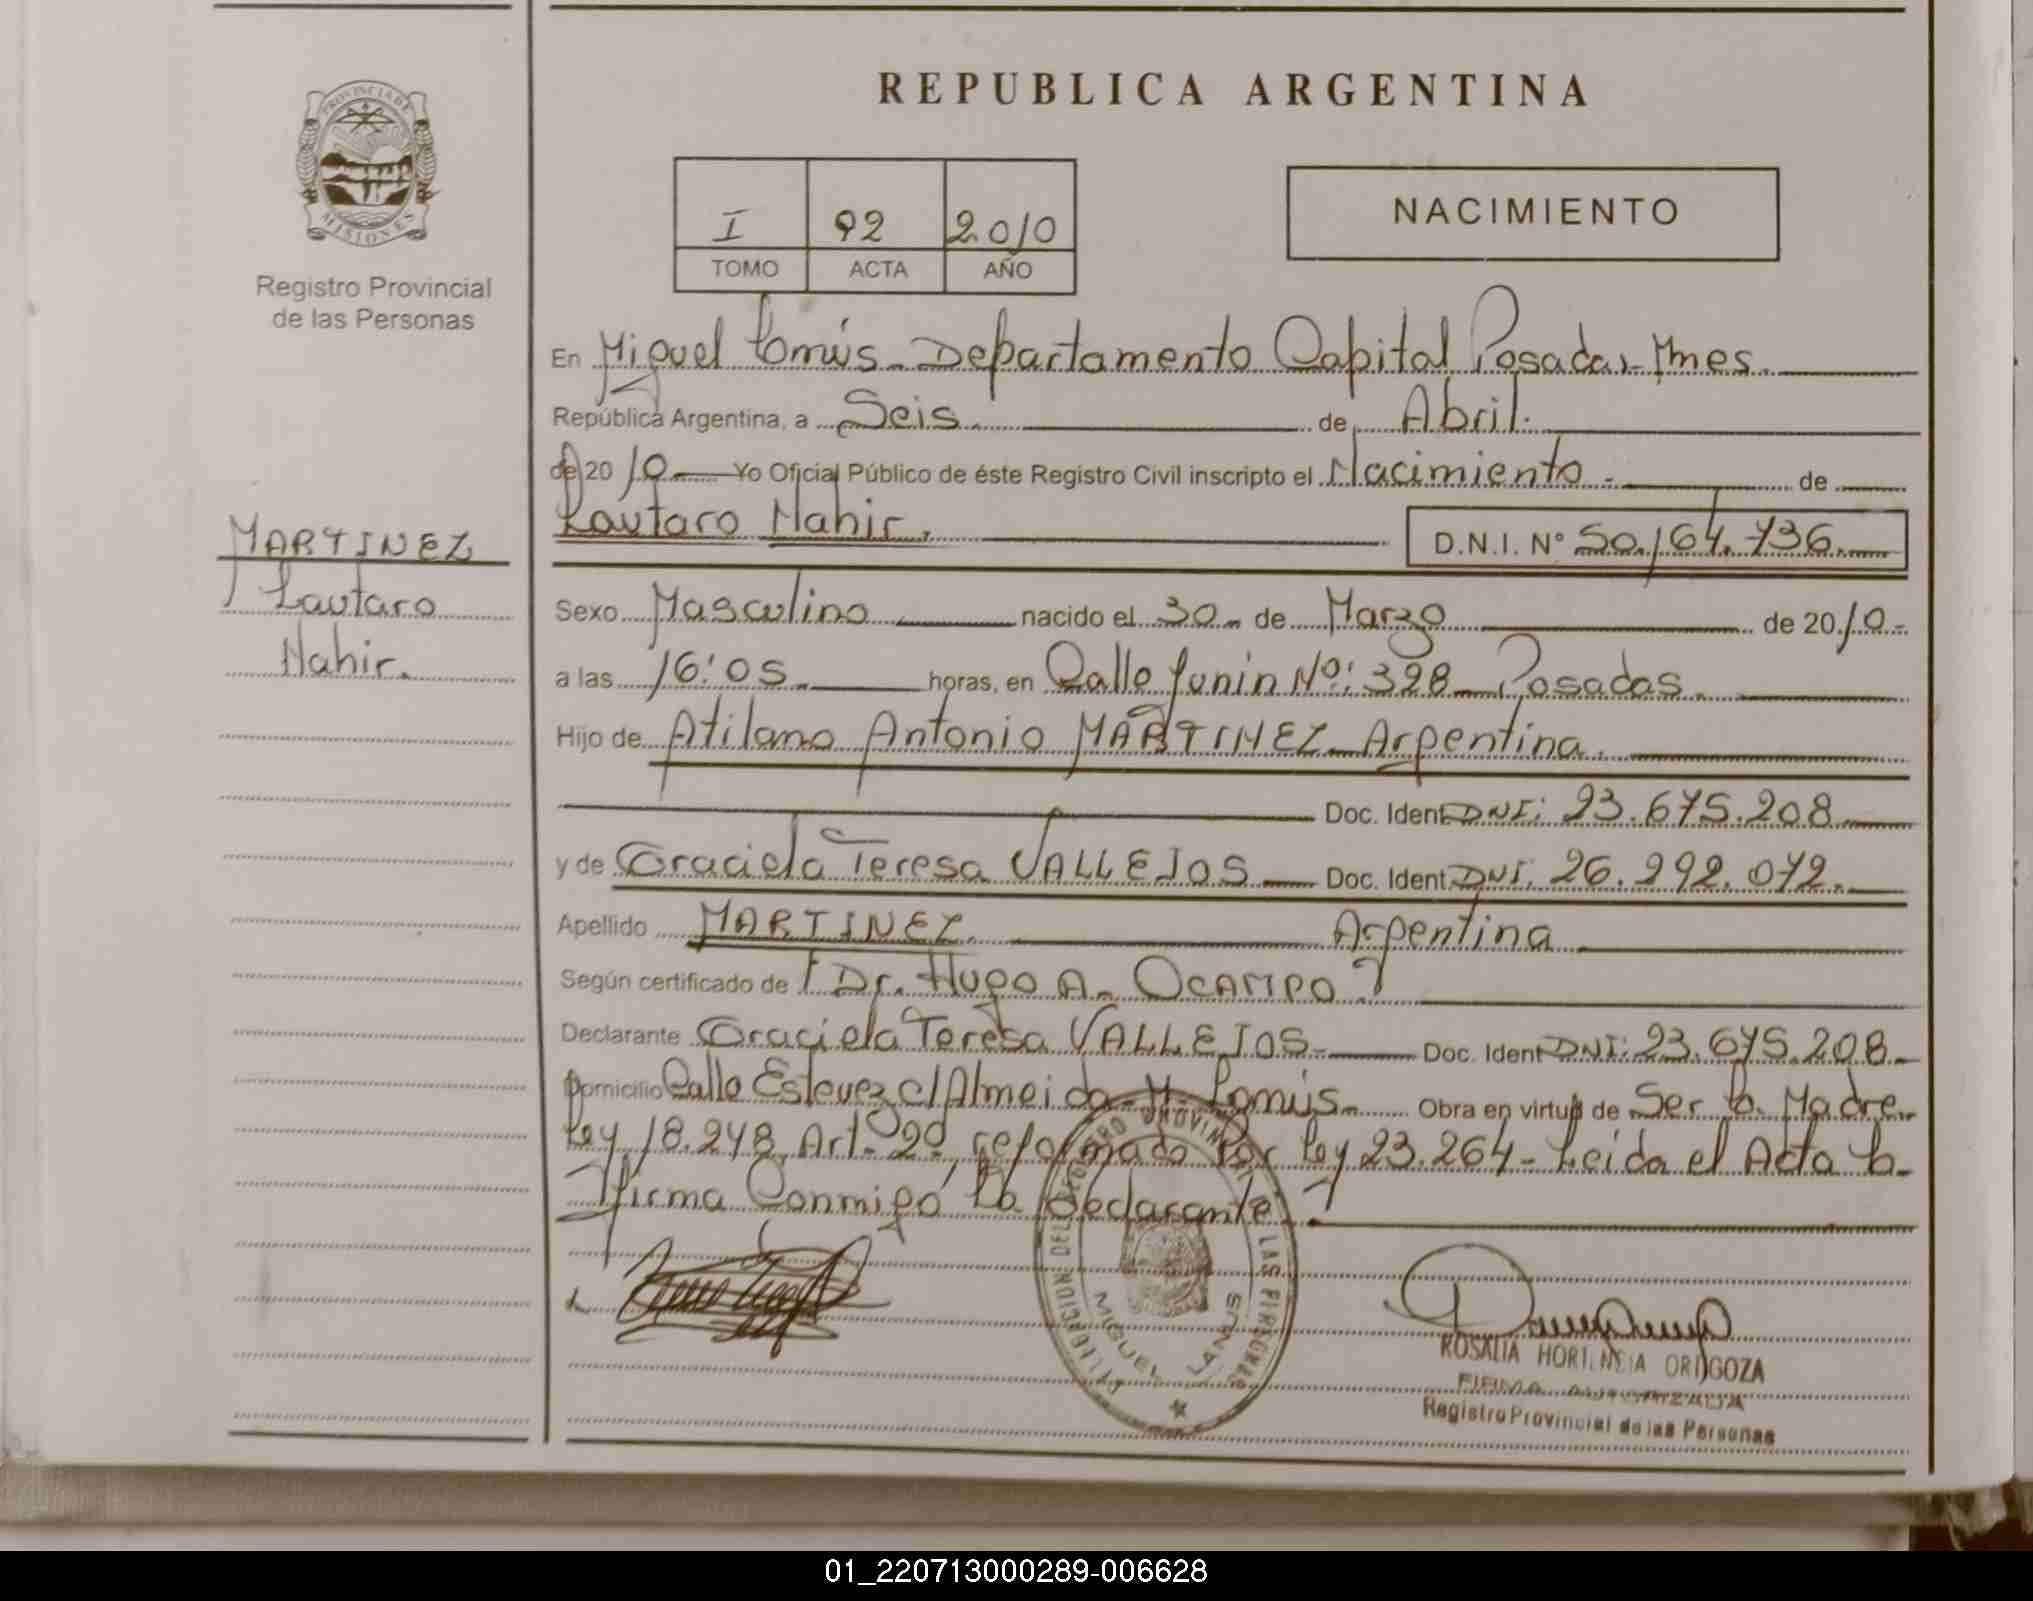 REPUBLICA ARGENTINA
PROVINCIA DE
MISIONES
Registro Provincial
de las Personas
I 92 2010
TOMO ACTA AÑO
NACIMIENTO
En Miguel Lanús - Departamento Capital Posadas - Mnes.
República Argentina, a Seis. de Abril.
de 2010 Yo Oficial Público de éste Registro Civil inscripto el Nacimiento - de
Lautaro Nahir.
D.N.I. Nº 50.164.736.
MARTINEZ
Lautaro
Nahir.
Sexo Masculino nacido el 30 - de Marzo de 2010 -
a las 16:05 horas, en Calle Junin Nº: 328 - Posadas.
Hijo de Atilano Antonio MARTINEZ - Argentina.
Doc. Ident DNI: 23.675.208
y de Graciela Teresa VALLEJOS - Doc. Ident DNI: 26.292.072.
Apellido MARTINEZ. Argentina
Según certificado de "Dr. Hugo A. OCAMPO"
Declarante Graciela Teresa VALLEJOS - Doc. Ident DNI: 23.675.208 -
Domicilio Calle Estevez c/ Almeida - M. Lanús - Obra en virtud de Ser la Madre -
Ley 18.248, Art. 2º, reformado Por Ley 23.264 - Leida el Acta la
firma Conmigo la declarante.
DELEGACION DEL REGISTRO PROVINCIAL DE LAS PERSONAS
MIGUEL LANUS
ROSALIA HORTENCIA ORTIGOZA
FIRMA AUTORIZADA
Registro Provincial de las Personas
01_220713000289-006628